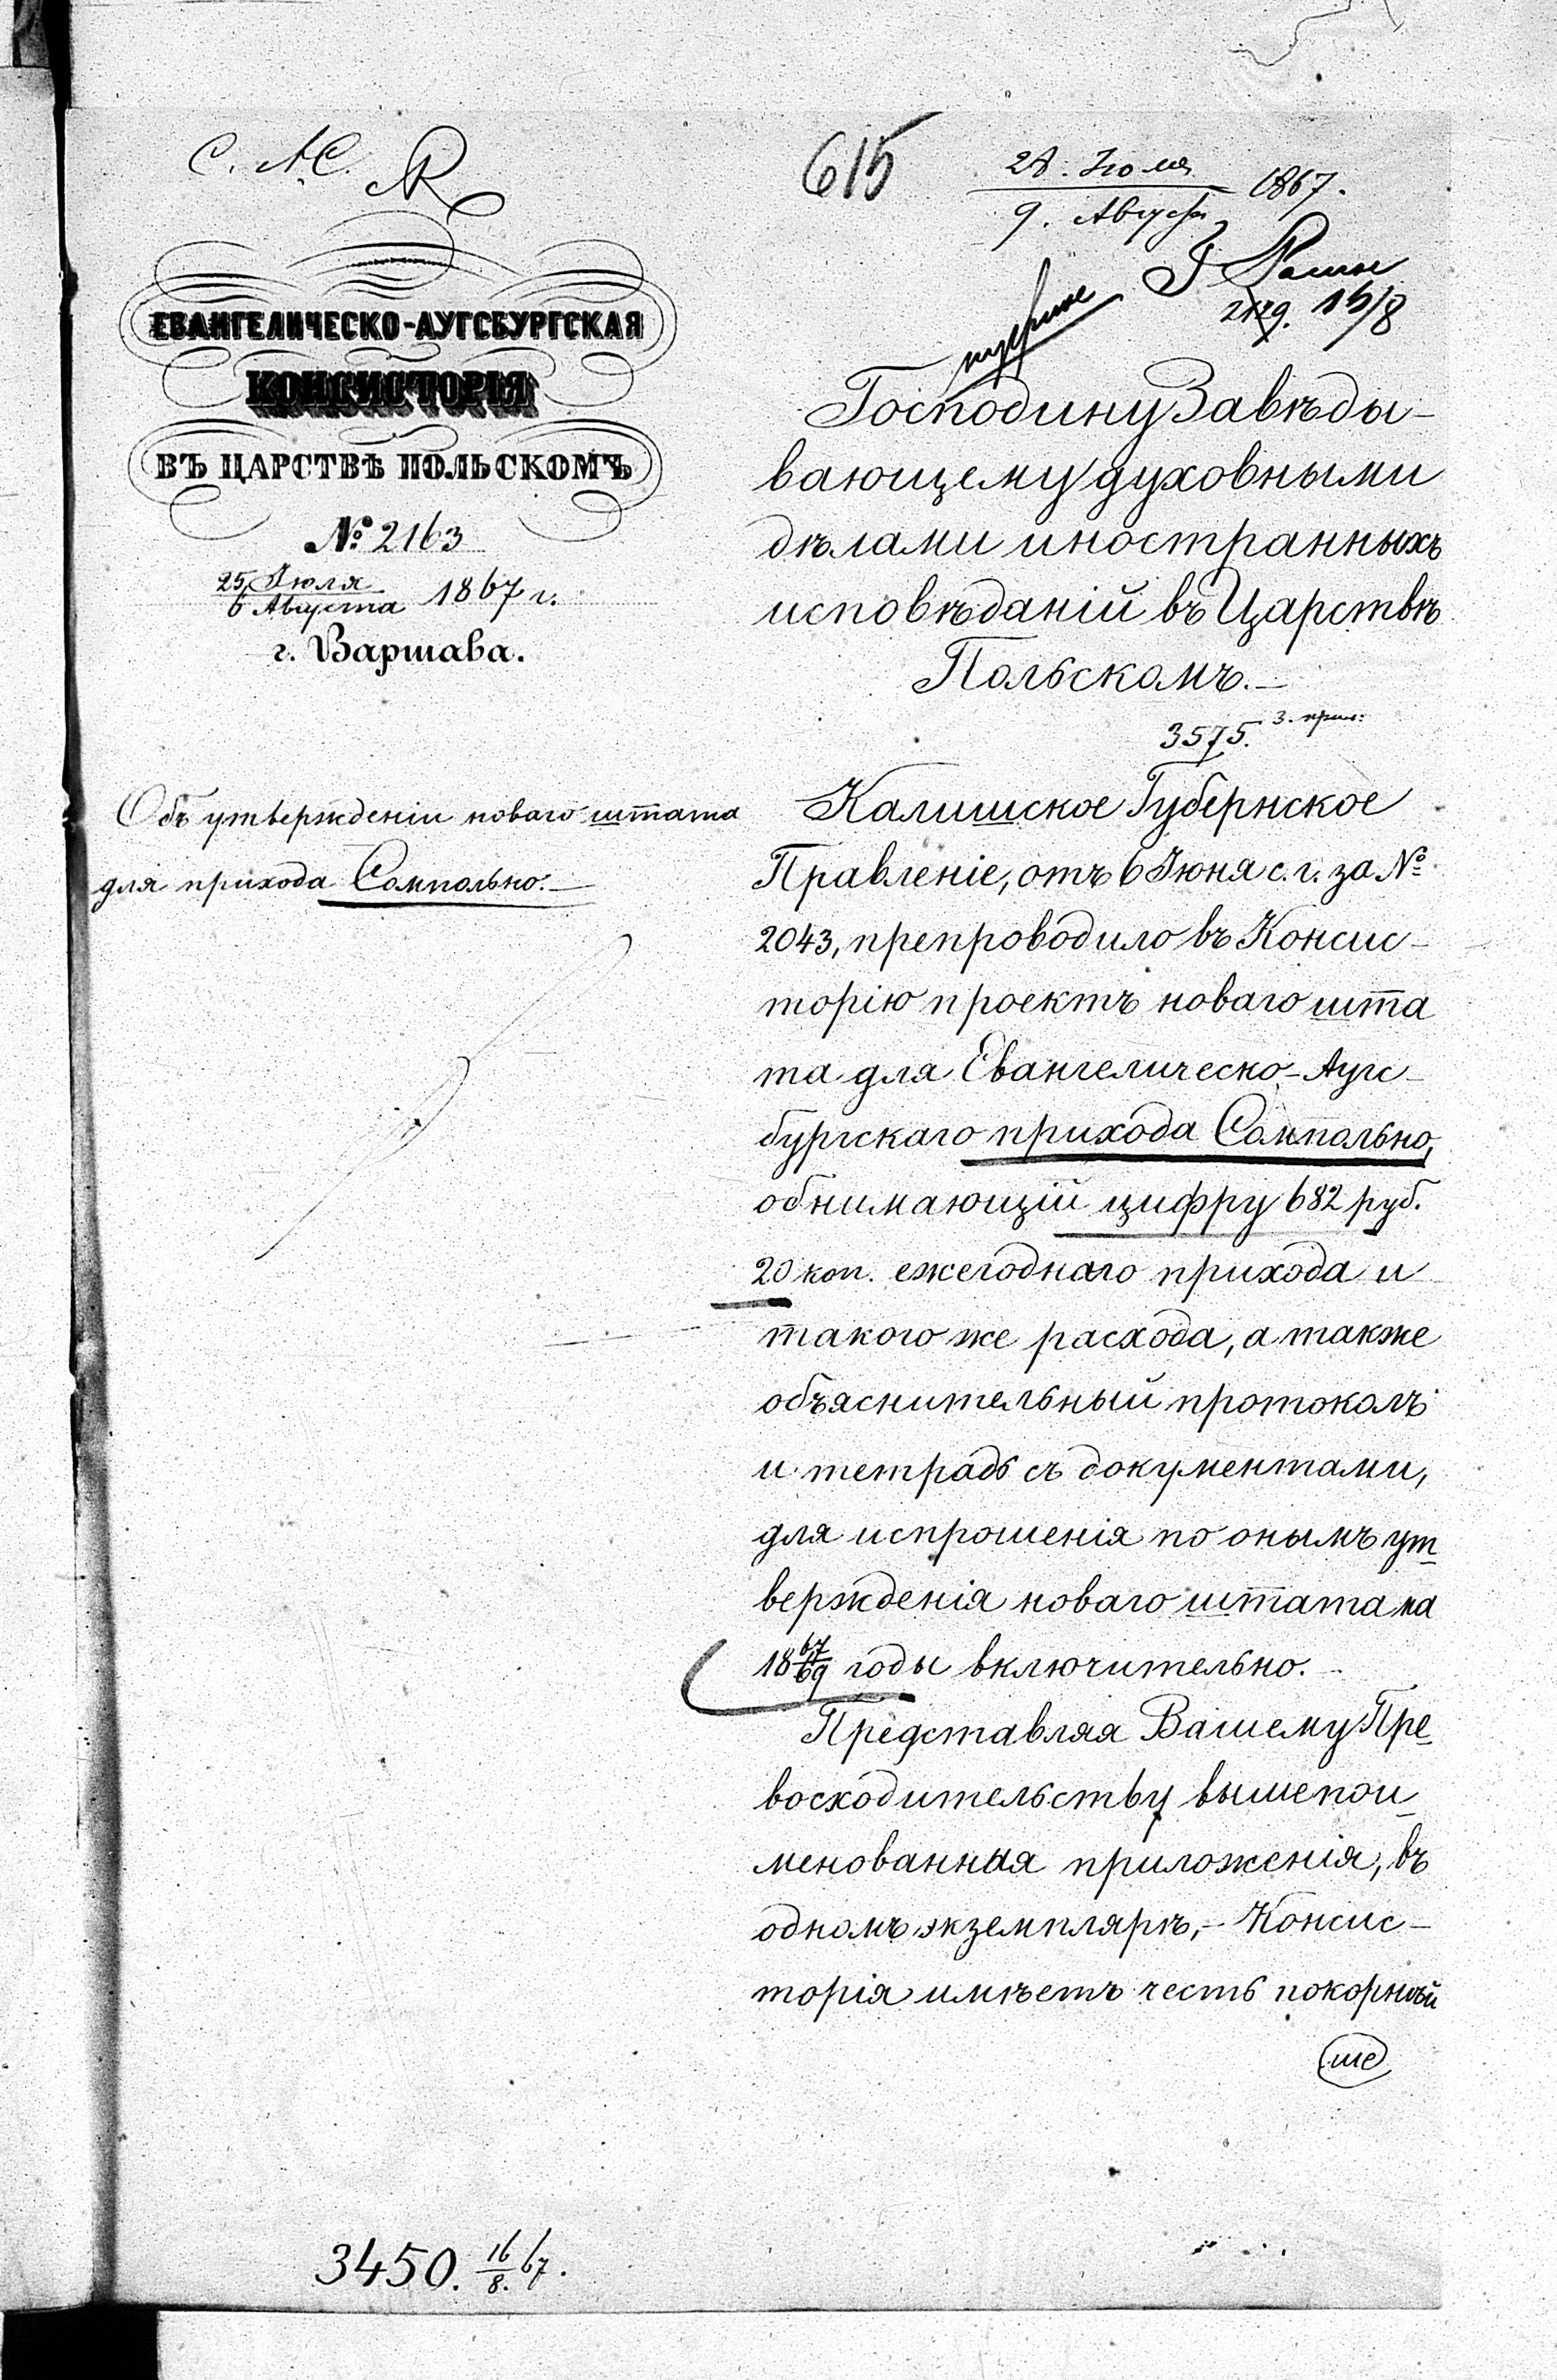 С. А. С.
615
28. Июля
9. Августа 1867.
2129. 15/8
ЕВАНГЕЛИЧЕСКО-АУГСБУРГСКАЯ
КОНСИСТОРІЯ
ВЪ ЦАРСТВѢ ПОЛЬСКОМЪ
№ 2163
25 Іюля
6 Августа 1867 г.
г. Варшава.
Объ утвержденіи новаго штата
для прихода Сомпольно.—
Господину Завѣды-
вающему духовными
дѣлами иностранныхъ
исповѣданій въ Царствѣ
Польскомъ.—
3575. 3. прил:
Калишское Губернское
Правленіе, отъ 6 Іюня с. г. за №
2043, препроводило въ Консис-
торію проектъ новаго шта
та для Евангелическо-Аугс-
бургскаго прихода Сомпольно,
обнимающій цифру 682 руб.
20 коп. ежегоднаго прихода и
такого же расхода, а также
объяснительный протоколъ
и тетрадь съ документами,
для испрошенія по онымъ ут
вержденія новаго штата на
18 67/69 годы включительно.—
Представляя Вашему Пре
восходительству вышепои
менованныя приложенія, въ
одномъ экземплярѣ,- Консис-
торія имѣетъ честь покорнѣй
ше
3450. 16/8. 67.